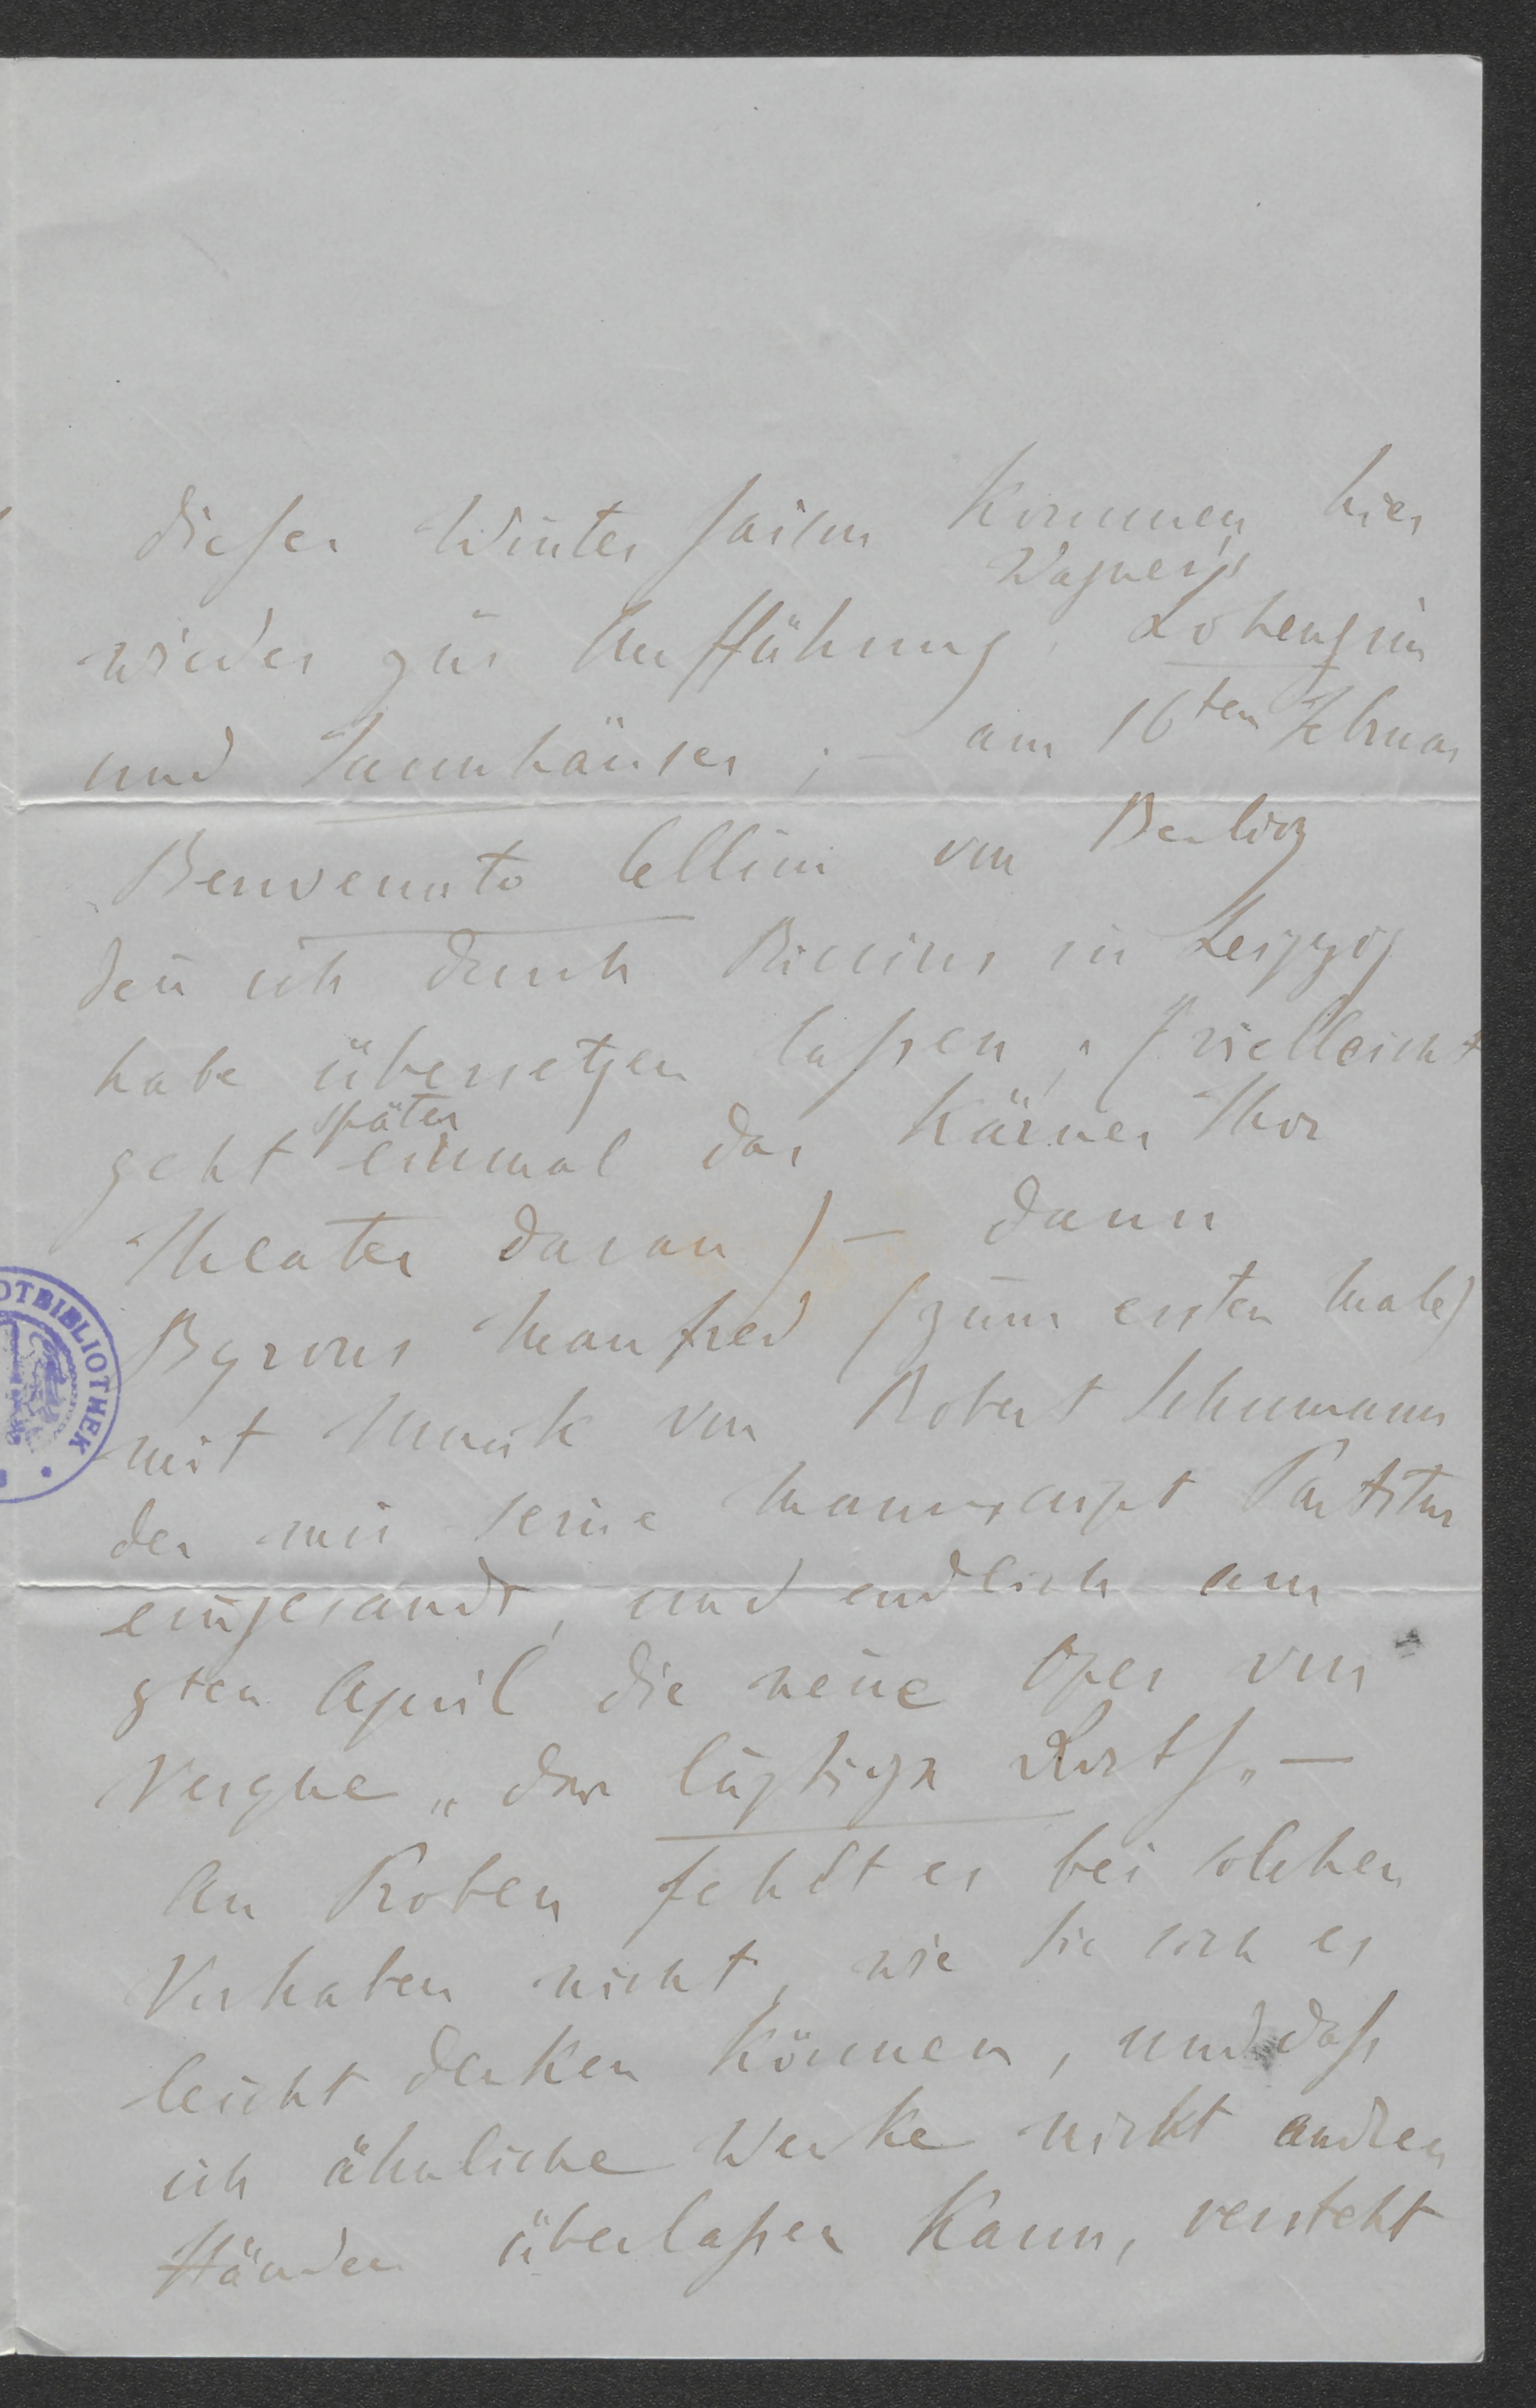 dieser Winter saison kommen hier
Wagner's
wieder zur Aufführung, Lohengrin
und Tannhäuser ; – am 16ten Februar
Benvenuto Cellini von Berlioz
den ich durch Riccius in Leipzig
habe übersetzen laßen ; (vielleicht
später
geht einmal das Kärner Thor
Theater daran) – dann
Byrons Manfred (zum ersten Male)
mit Musik von Robert Schumann
der mir seine Manuscript Partitur
eingesandt, und endlich am
8ten April die neue Oper von
Vesque „der lustige Rath„ –
An Proben fehlt es bei solchen
Vorhaben nicht, wie Sie sich es
leicht denken können, und daß
ich ähnliche Werke nicht andren
Händen überlaßen kann, versteht
OTBIBLIOTHEK